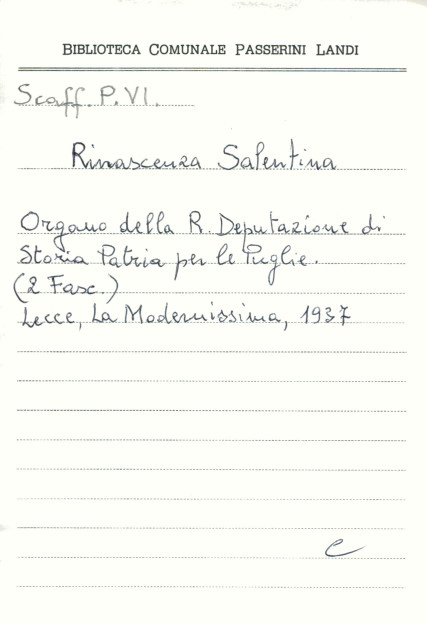 BIBLIOTECA COMUNALE PASSERINI LANDI
Scaff. P. VI.
Rinascenza Salentina
Organo della R. Deputazione di
Storia Patria per le Puglie.
(2 Fasc.)
Lecce, La Modernissima, 1937
e